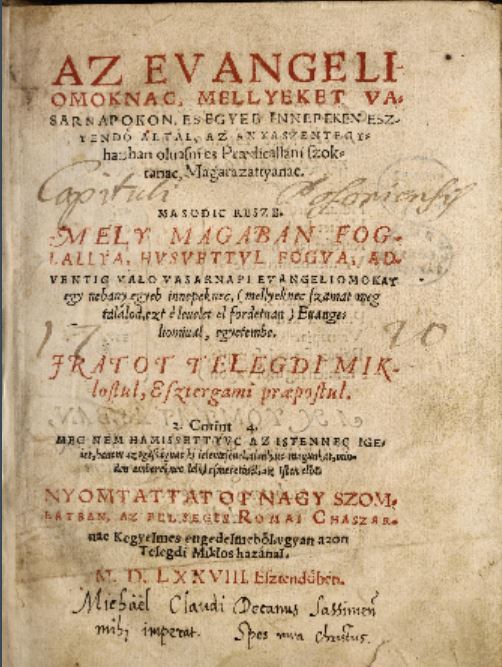 AZ EVANGELI-
OMOKNAC, MELLYEKET VA-
SARNAPOKON, ES EGYEB INNEPEKEN ESZ-
TENDÖ ALTAL, AZ ANYASZENTEGY-
hazban oluasni es Prædicallani szok-
tanac, Magarazattyanac.
Capituli Posoniensis
MASODIC RESZE.
MELY MAGABAN FOG-
LALLYA, HVSVETTVL FOGVA, AD-
VENTIG VALO VASARNAPI EVANGELIOMOKAT
egy nehany egyeb innepeknec, (mellyeknec szamat meg
talalod, ezt è leuelet el fordituan) Euange-
liomiual, egyetembe.
17 20
IRATOT TELEGDI MIK-
lostul, Esztergami præpostul.
2. Corint 4.
MEG NEM HAMISSETTYVC AZ ISTENNEC IGE-
NYOMTATTATOT NAGY SZOM-
BATBAN, AZ FELSEGES ROMAI CHASZAR-
nac Kegyelmes engedelmeböl, vgyan azon
Telegdi Miklos hazánal.
M. D. LXXVIII. Esztendöben.
Michaël Claudi Decanus Sassinien
mihi imperat. Spes mea Christus.